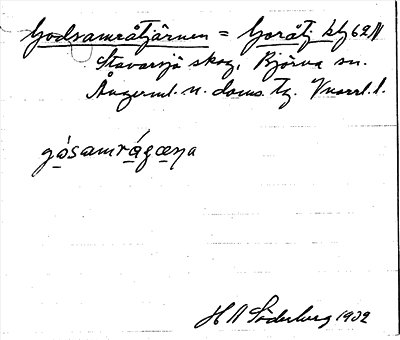 Godsamråtjärnen = Goråtj klj 62 N
Stavarsjö skog, Björna sn.
Ångerml. n. doms. tg. Vnorrl. l.
gósamrágæŋa
H N Söderberg 1932